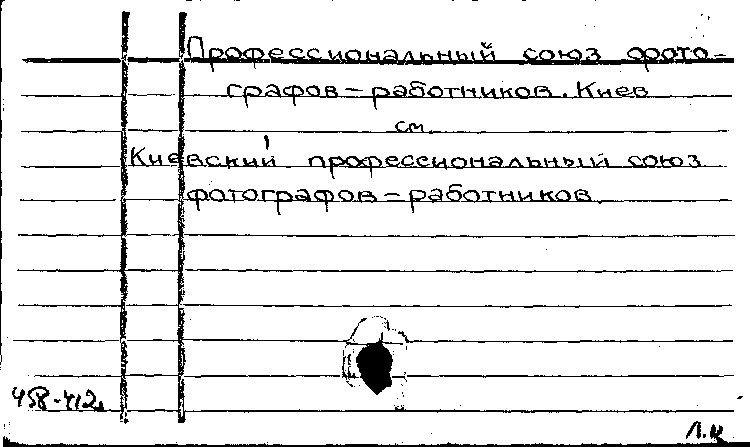 Профессиональный союз фото-
графов-работников. Киев
см.
Киевский профессиональный союз
фотографов-работников.
458-412
Л.К